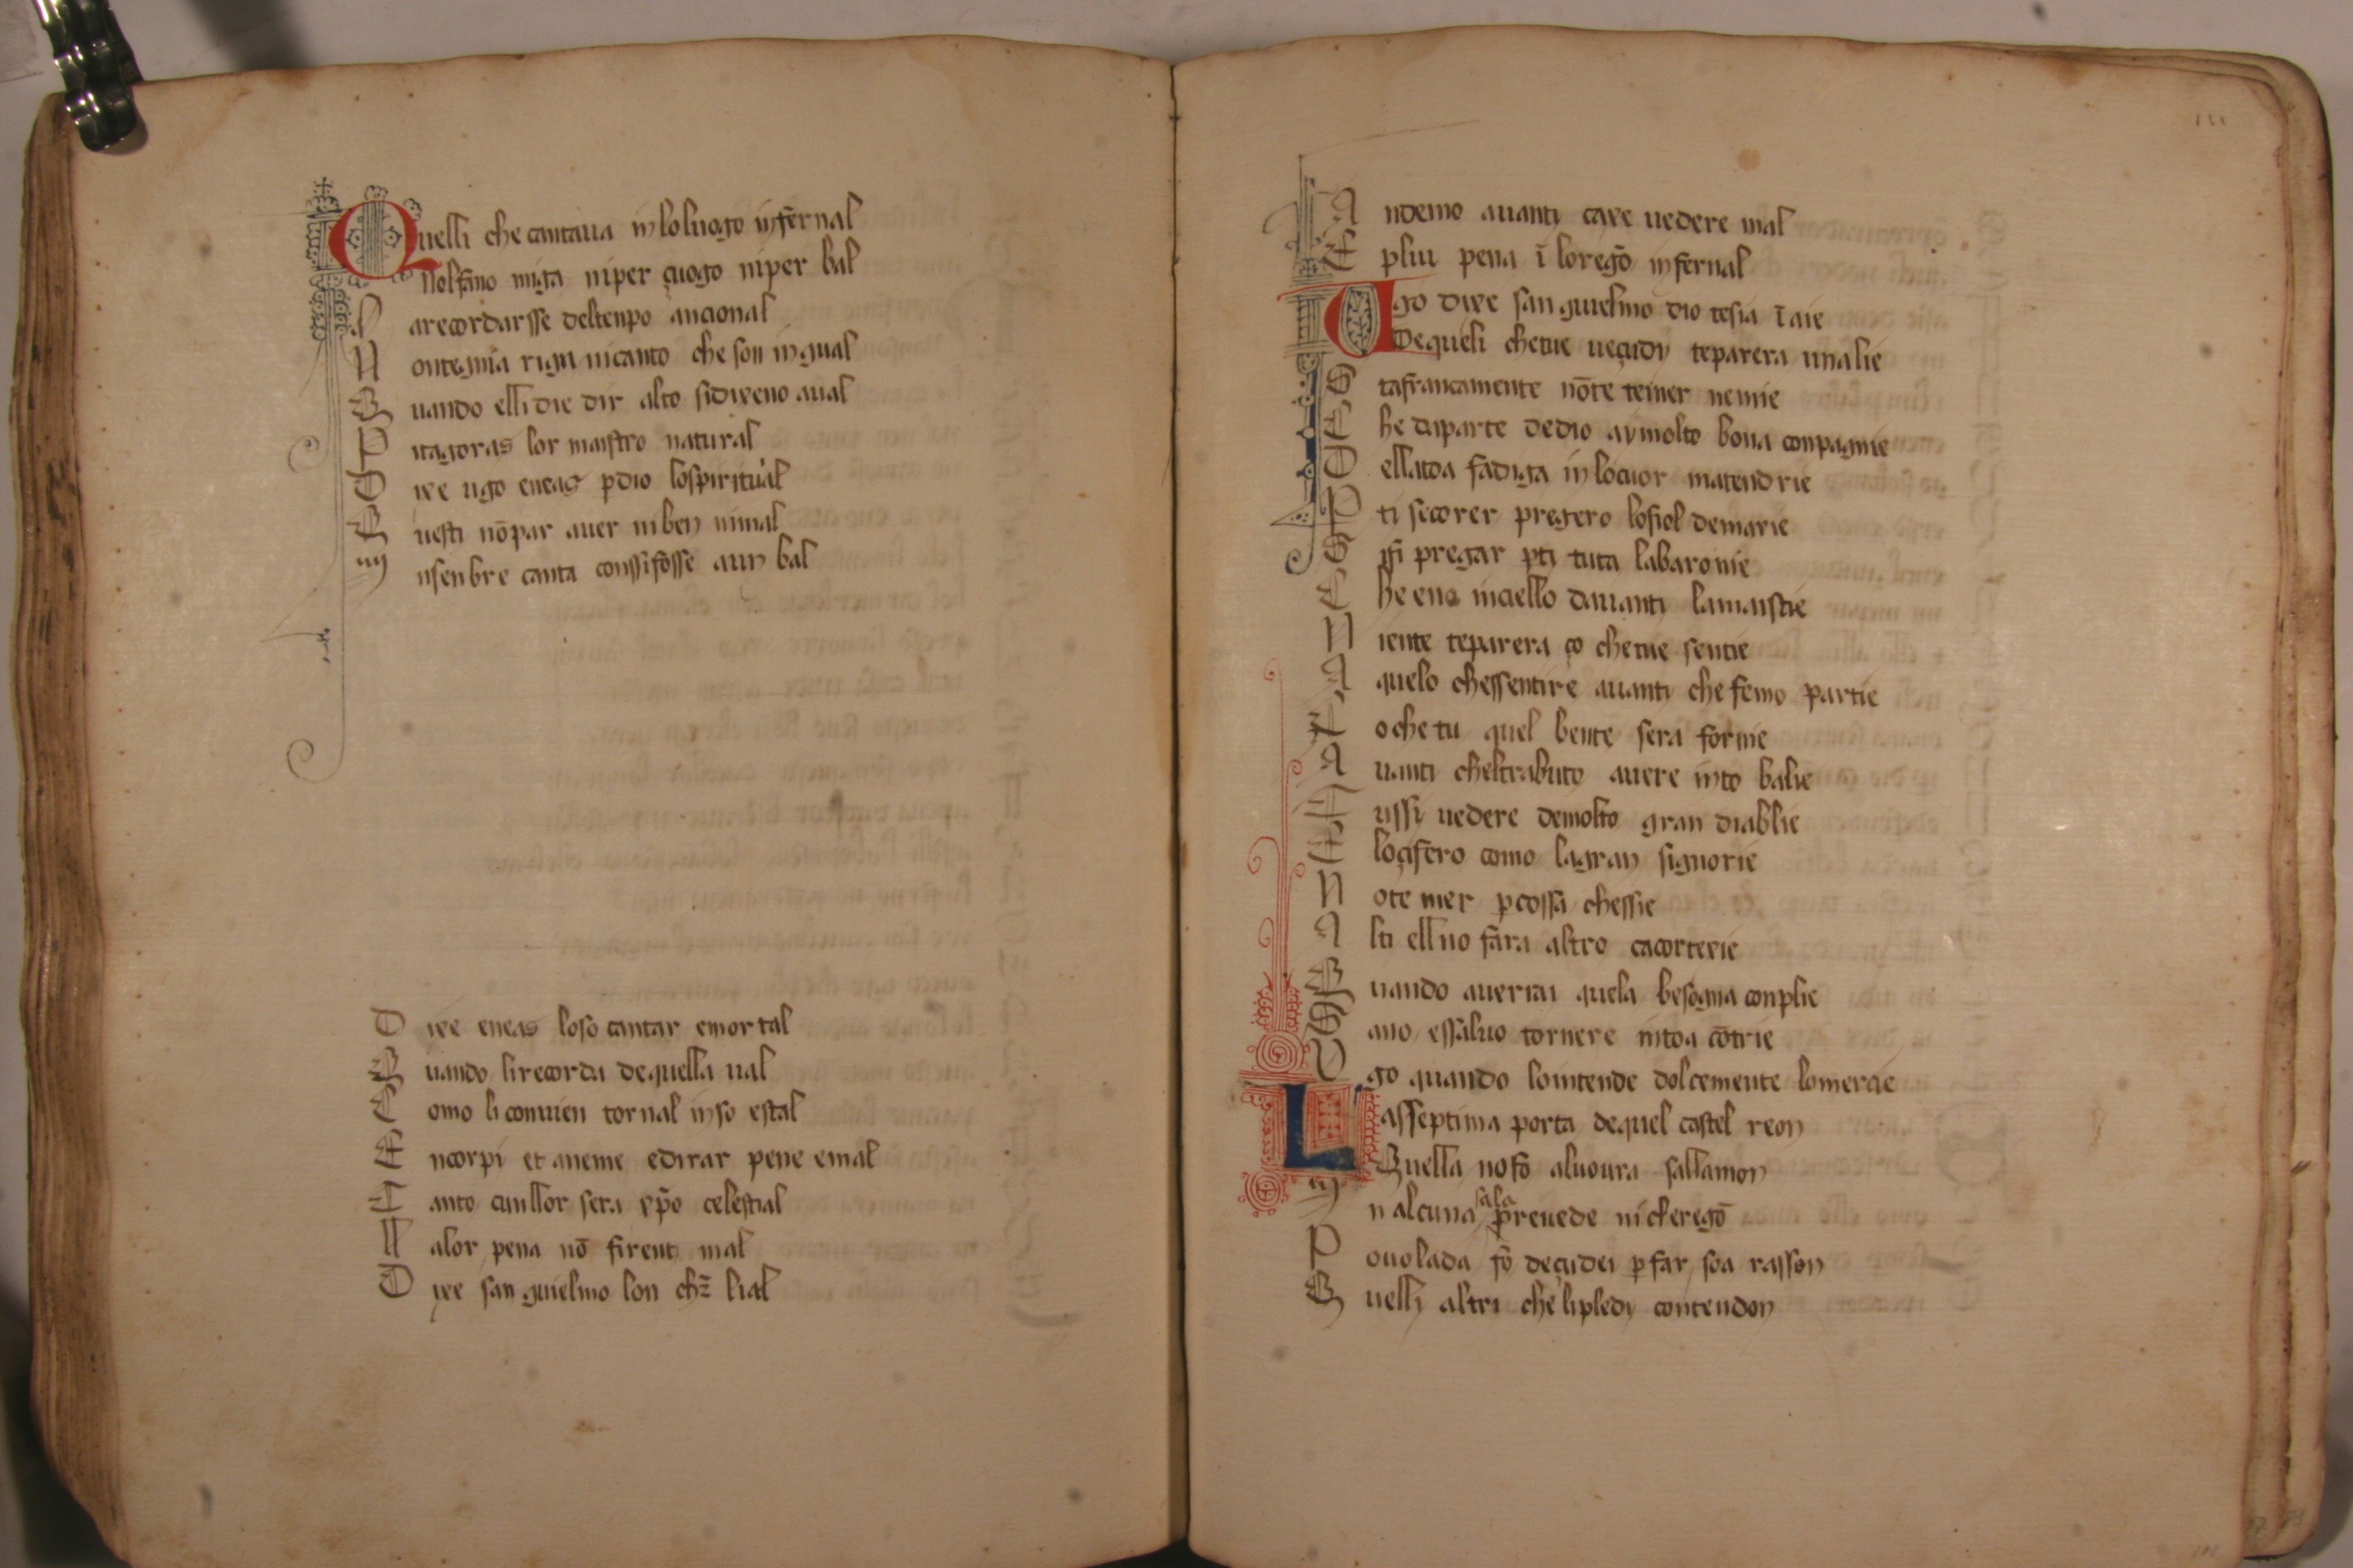 Quelli che cantaua in lo luogo infernal
Nol fano miga ni per çuogo ni per bal
arecordarsse del tenpo ancional
Non tegnia rigu ni canto che son ingual
Quando elli die dir alto si dixeno aual
Pitagoras lor maistro natural
Dixe ugo eneas p dio lo spiritual
Questi nō par auer ni ben ni mal
Insenbre canta conssi fosse a un bal
Dixe eneas lo so cantar e mortal
Quando li recorda de quella ual
Como li conuien tornal in so estal
En corpi et aneme e durar pene e mal
Tanto cuillor sera xp̄o celestial
alor pena nō firent mal
Dixe san guielmo lon chr̄ lial
Andemo auanti caxe uedere mal
E plui pena ī lo regō infernal
Ugo dixe san guielmo dio te sia ī aie
De queli che tue ueçudi te parera una lie
Sta francamente nō te temer nemie
Che da parte de dio ay molto bona conpagnie
De la toa fadiga in lo cuor ma tendrie
P ti secorer pregero lo fiol de marie
E si pregar p ti tuta la baronie
Che eno in ciello dauanti la maistie
Niente te parera ço che tue sentie
A quelo chessentire auanti che femo partie
Fo che tu quel bente sera fornie
Auanti chel trabuto auere in to balie
ussi uedere de molto gran diablie
E loçifero como la gran signorie
No te mer p cossa chessie
Alti ell no fara altro ca corterie
Quando auerai quela besogna conplie
Sano essaluo tornere in toa cōtrie
Ugo quando lo intende dolcemente lo mercie
La sseptima porta de quel castel reon
Quella no fo a luoura sallamon
In alcuna sala preuede ni cleregō
Pouolada fo de çudei p far soa rasson
Quelli altri che li pledi contendon